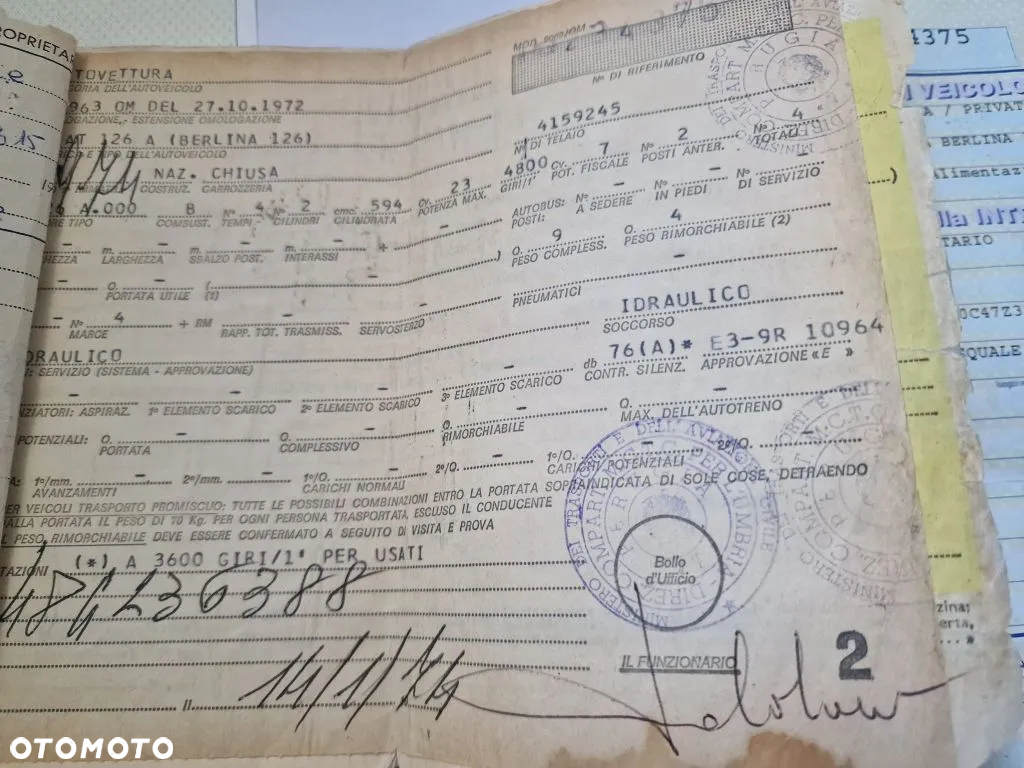 PROPRIETAR
TOVETTURA
ORIA DELL'AUTOVEICOLO
963 OM DEL 27.10.1972
OGAZIONE - ESTENSIONE OMOLOGAZIONE
AT 126 A (BERLINA 126)
E TIPO DELL'AUTOVEICOLO
NAZ. CHIUSA
COSTRUZ. CARROZZERIA
POTENZA MAX. 23 CV. 4800 GIRI/1'
4.000 B N° 4 N° 2 cmc. 594
RE TIPO COMBUST. TEMPI CILINDRI CILINDRATA
N° DI RIFERIMENTO
4159245
N° DI TELAIO
CV. 7 N° 2 N° 4
POT. FISCALE POSTI ANTER. TOTALI
AUTOBUS: N° – N° – N° –
POSTI: A SEDERE IN PIEDI DI SERVIZIO
– m. – m. – m. – + –
GHEZZA LARGHEZZA SBALZO POST. INTERASSI
) Q. 9 Q. 4
PESO COMPLESS. PESO RIMORCHIABILE (2)
– Q. – (
PORTATA UTILE (1)
PNEUMATICI –
– N° 4 + RM – –
MARCE RAPP. TOT. TRASMISS. SERVOSTERZO
IDRAULICO
SOCCORSO
DRAULICO
I: SERVIZIO (SISTEMA - APPROVAZIONE)
db 76(A)* E3-9R 10964
CONTR. SILENZ. APPROVAZIONE «E »
NZIATORI: ASPIRAZ. 1° ELEMENTO SCARICO 2° ELEMENTO SCARICO 3° ELEMENTO SCARICO
POTENZIALI: Q. – Q. – – Q. –
PORTATA COMPLESSIVO RIMORCHIABILE MAX. DELL'AUTOTRENO
1°/mm. – 2°/mm. – 1°/Q. – 2°/Q. – 1°/Q. – 2°/Q. –
AVANZAMENTI CARICHI NORMALI CARICHI POTENZIALI
PER VEICOLI TRASPORTO PROMISCUO: TUTTE LE POSSIBILI COMBINAZIONI ENTRO LA PORTATA SOPRAINDICATA DI SOLE COSE, DETRAENDO
DALLA PORTATA IL PESO DI 70 Kg. PER OGNI PERSONA TRASPORTATA, ESCLUSO IL CONDUCENTE
L PESO RIMORCHIABILE DEVE ESSERE CONFERMATO A SEGUITO DI VISITA E PROVA
TAZIONI (*) A 3600 GIRI/1' PER USATI
Bollo
d'Ufficio
IL FUNZIONARIO
2
li 14/1/74
4375
VEICOLO
A / PRIVAT
BERLINA
limentaz
lla INT
TARIO
0C47Z3
SQUALE
zina;
erta,
OTOMOTO